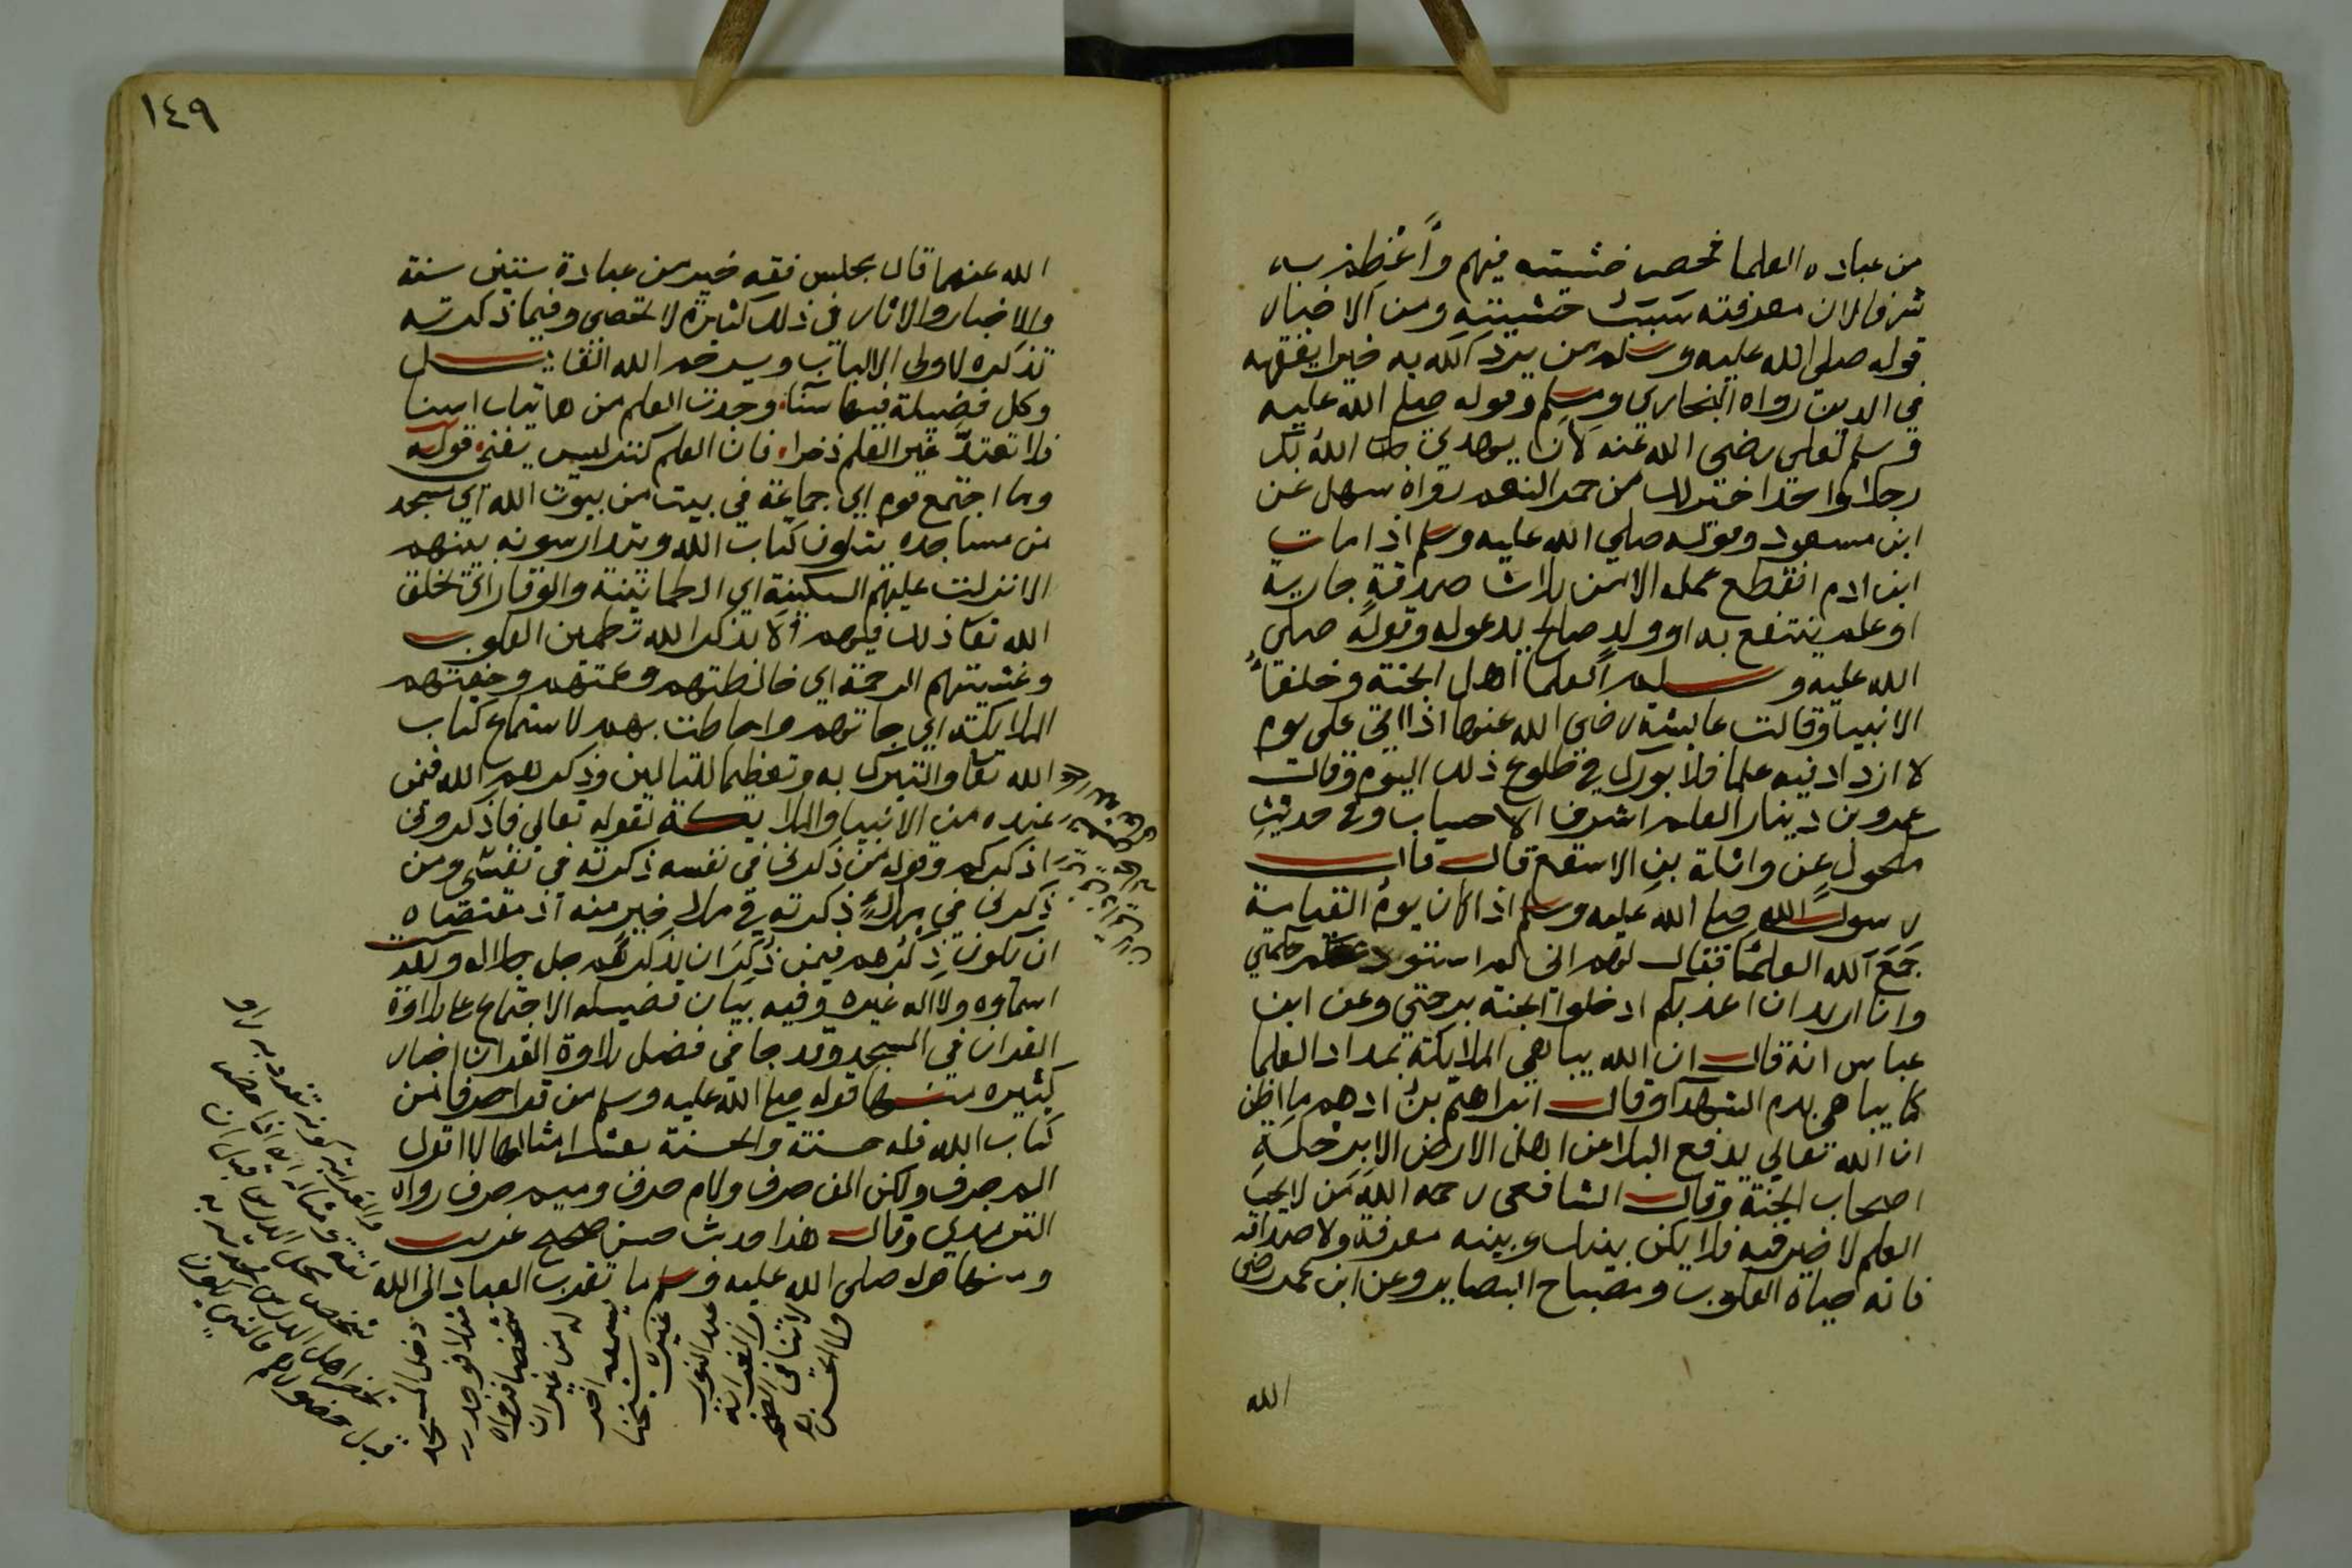 من عباده العلما فخص خشيته فيهم وأعْظِم به
شرفا لان معرفته سَبَبُ خشيته ومن الاخبار
قوله صلى الله عليه وسلم من يرد الله به خيرا يفقهه
في الدين رواه البخاري ومسلم وقوله صلى الله عليه
وسلم لعلي رضي الله عنه لأن يهدي الله بك
رجلا واحدا خير لك من حمر النعم رواه سهل عن
ابن مسعود وقوله صلى الله عليه وسلم اذا مات
ابن ادم انقطع عمله الا من ثلاث صدقةٍ جارية
او علم ينتفع به او ولدٍ صالح يدعوله وقوله صلى
الله عليه وسلم العلما اهل الجنة وخلفاُ
الانبيا وقالت عايشة رضي الله عنها اذا اتى على يوم
لا ازداد فيه علما فلا بورك في طلوع ذلك اليوم وقال
عمرو بن دينار العلم اشرف الاحساب وفي حديثِ
مكحولٍ عن واثلة بن الاسقع قال قال
رسول الله صلى الله عليه وسلم اذا كان يوم القيامة
جَمَعَ الله العلما فقال لهم اني لم استودعكم حكمتي
وانا اريد ان اعذبكم ادخلوا الجنة برحمتي وعن ابن
عباس انه قال ان الله يباهي الملايكة بمداد العلما
كما يباهي بدم الشهدآ وقال ابراهيم بن ادهم ما اظن
ان الله تعالي يدفع البلا عن اهل الارض الا برحلةِ
اصحاب الجنة وقال الشافعى رحمه الله من لا يحب
العلم لا خير فيه فلا يكن بينك وبينه معرفة ولا صداقه
فانه حياة القلوب ومصباح البصاير وعن ابن عمر رضى
الله
١٤٩
الله عنهما قال مجلس فقه خير من عبادة ستين سنة
والاخبار والاثار في ذلك كثيرة لا تحصى وفيما ذكرته
تذكرة لاولى الالباب ويرحم الله القايل
وكل فضيلة فيها سنآء وجدت العلم من هاتيك اسنا
فلا تعتدَّ غير العلم ذخرا فان العلم كنز ليس يفنى قوله
وما اجتمع قوم اي جماعة في بيت من بيوت الله اي مسجد
من مساجده يتلون كتاب الله ويتدارسونه بينهم
الا نزلت عليهم السكينة اي الطمانينة والوقار اي يخلق
الله تعا ذلك فيهم ألا بذكر الله تطمين القلوب
وغشيتهم الرحمة اي خالطتهم وعمتهم وحفتهم
الملايكة اي حافتهم واحاطت بهم لاستماع كتاب
الله تعا والتبرك به وتعظيما للتالين وذكرهم الله فيمن
عنده من الانبيا والملايكة لقوله تعالي فاذكروني
اذكركم وقوله من ذكرني في نفسه ذكرته في نفسي ومن
ذكرني في ملاٍ ذكرته في ملا خير منه اذ مقتضاه
ان يكون ذكرهم فيمن ذُكِرَ ان يذكرهم جل جلاله وتقدست
اسماوه ولا اله غيره وفيه بيان فضيله الاجتماع على تلاوة
القران في المسجد وقد جا في فضل تلاوة القران اخبار
كثيره منها قوله صلى الله عليه وسلم من قرا حرفا من
كتاب الله فله حسنة والحسنة بعشر امثالها لا اقول
الم حرف ولكن الف حرف ولام حرف وميم حرف رواه
الترمذي وقال هذا حديث حسن صحيح غريب
ومنها قوله صلى الله عليه وسلم ما تقرب العباد الى الله